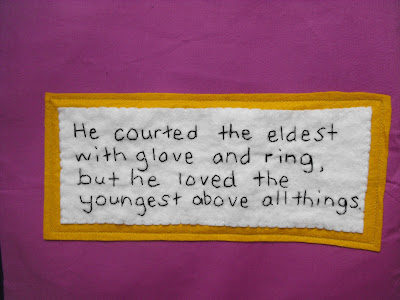 He courted the eldest
with glove and ring,
but he loved the
youngest above all things.